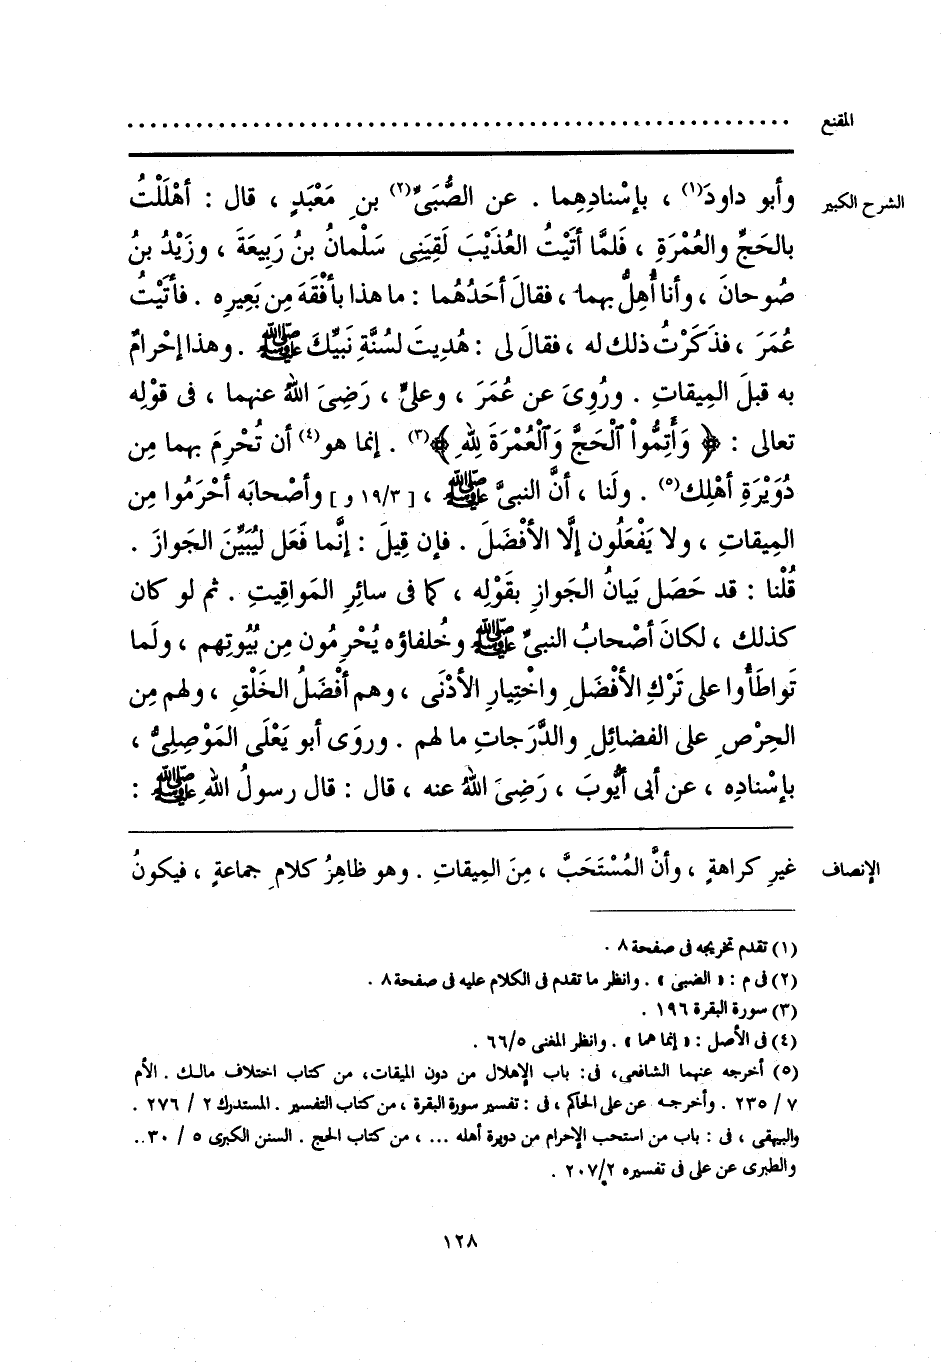 المقنع ........................................................
الشرح الكبير وأبو داودَ(١) ، بإسْنادِهِما . عن الصُّبَىِّ(٢) بنِ مَعْبَدٍ ، قال : أهْلَلْتُ
بالحَجِّ والعُمْرَةِ ، فَلمَّا أتَيْتُ العُذَيْبَ لَقِيَنِى سَلْمانُ بنُ رَبِيعَةَ ، وزَيْدُ بنُ
صُوحانَ ، وأنا أُهِلُّ بهما ، فقالَ أحَدُهُما : ما هذا بأفْقَهَ مِن بَعِيرِه . فأتَيْتُ
عُمَرَ ، فذَكَرْتُ ذلك له ، فقال لى : هُدِيتَ لسُنَّةِ نَبِيِّكَ ﷺ . وهذا إحْرامٌ
به قبلَ المِيقاتِ . ورُوِىَ عن عُمَرَ ، وعلىٍّ ، رَضِىَ اللهُ عنهما ، فى قوْلِه
تعالى : ﴿ وَأَتِمُّواْ ٱلْحَجَّ وَٱلْعُمْرَةَ لِلَّهِ ﴾(٣) . إنما هو(٤) أن تُحْرِمَ بهما مِن
دُوَيْرَةِ أهْلِك(٥) . ولَنا ، أنَّ النبىَّ ﷺ ، [ ١٩/٣ و ] وأصْحابَه أحْرَمُوا مِن
المِيقاتِ ، ولا يَفْعَلُون إلَّا الأفْضَلَ . فإن قِيلَ : إنَّما فَعَل ليُبَيِّنَ الجَوازَ .
قُلْنا : قد حَصَل بَيانُ الجَوازِ بقَوْلِه ، كما فى سائِرِ المَواقِيتِ . ثم لو كان
كذلك ، لكانَ أصْحابُ النبىِّ ﷺ وخُلفاؤه يُحْرِمُون مِن بُيُوتِهم ، ولَما
تَواطَأُوا على تَرْكِ الأفْضَلِ واخْتِيارِ الأدْنَى ، وهم أفْضَلُ الخَلْقِ ، ولهم مِن
الحِرْصِ على الفضائِلِ والدَّرَجاتِ ما لهم . وروَى أبو يَعْلَى المَوْصِلِىُّ ،
بإسْنادِه ، عن أبى أيُّوبَ ، رَضِىَ اللهُ عنه ، قال : قال رسولُ اللهِ ﷺ :
الإنصاف غيرِ كراهةٍ ، وأنَّ المُسْتَحَبَّ ، مِنَ المِيقاتِ . وهو ظاهِرُ كلامِ جماعةٍ ، فيكونُ
(١) تقدم تخريجه فى صفحة ٨ .
(٢) فى م : « الضبى » . وانظر ما تقدم فى الكلام عليه فى صفحة ٨ .
(٣) سورة البقرة ١٩٦ .
(٤) فى الأصل : « إنما هما » . وانظر المغنى ٦٦/٥ .
(٥) أخرجه عنهما الشافعى، فى: باب الإهلال من دون الميقات، من كتاب اختلاف مالك . الأم
٧ / ٢٣٥ . وأخرجه عن على الحاكم ، فى : تفسير سورة البقرة ، من كتاب التفسير . المستدرك ٢ / ٢٧٦ .
والبيهقى ، فى : باب من استحب الإحرام من دويرة أهله ... ، من كتاب الحج . السنن الكبرى ٥ / ٣٠ ..
والطبرى عن على فى تفسيره ٢٠٧/٢ .
١٢٨